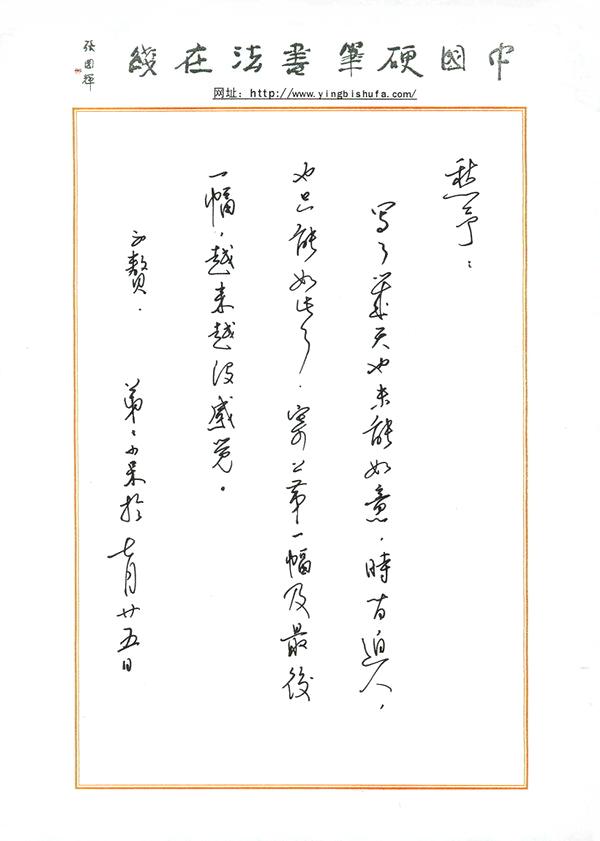 中國硬筆書法在綫
張國輝
网址：http://www.yingbishufa.com/
愁予：
写了几天也未能如意，時迫人，
也只能如此了．寄上第一幅及最後
一幅，越来越没感觉。
不赘．
弟：小呆於七月廿五日